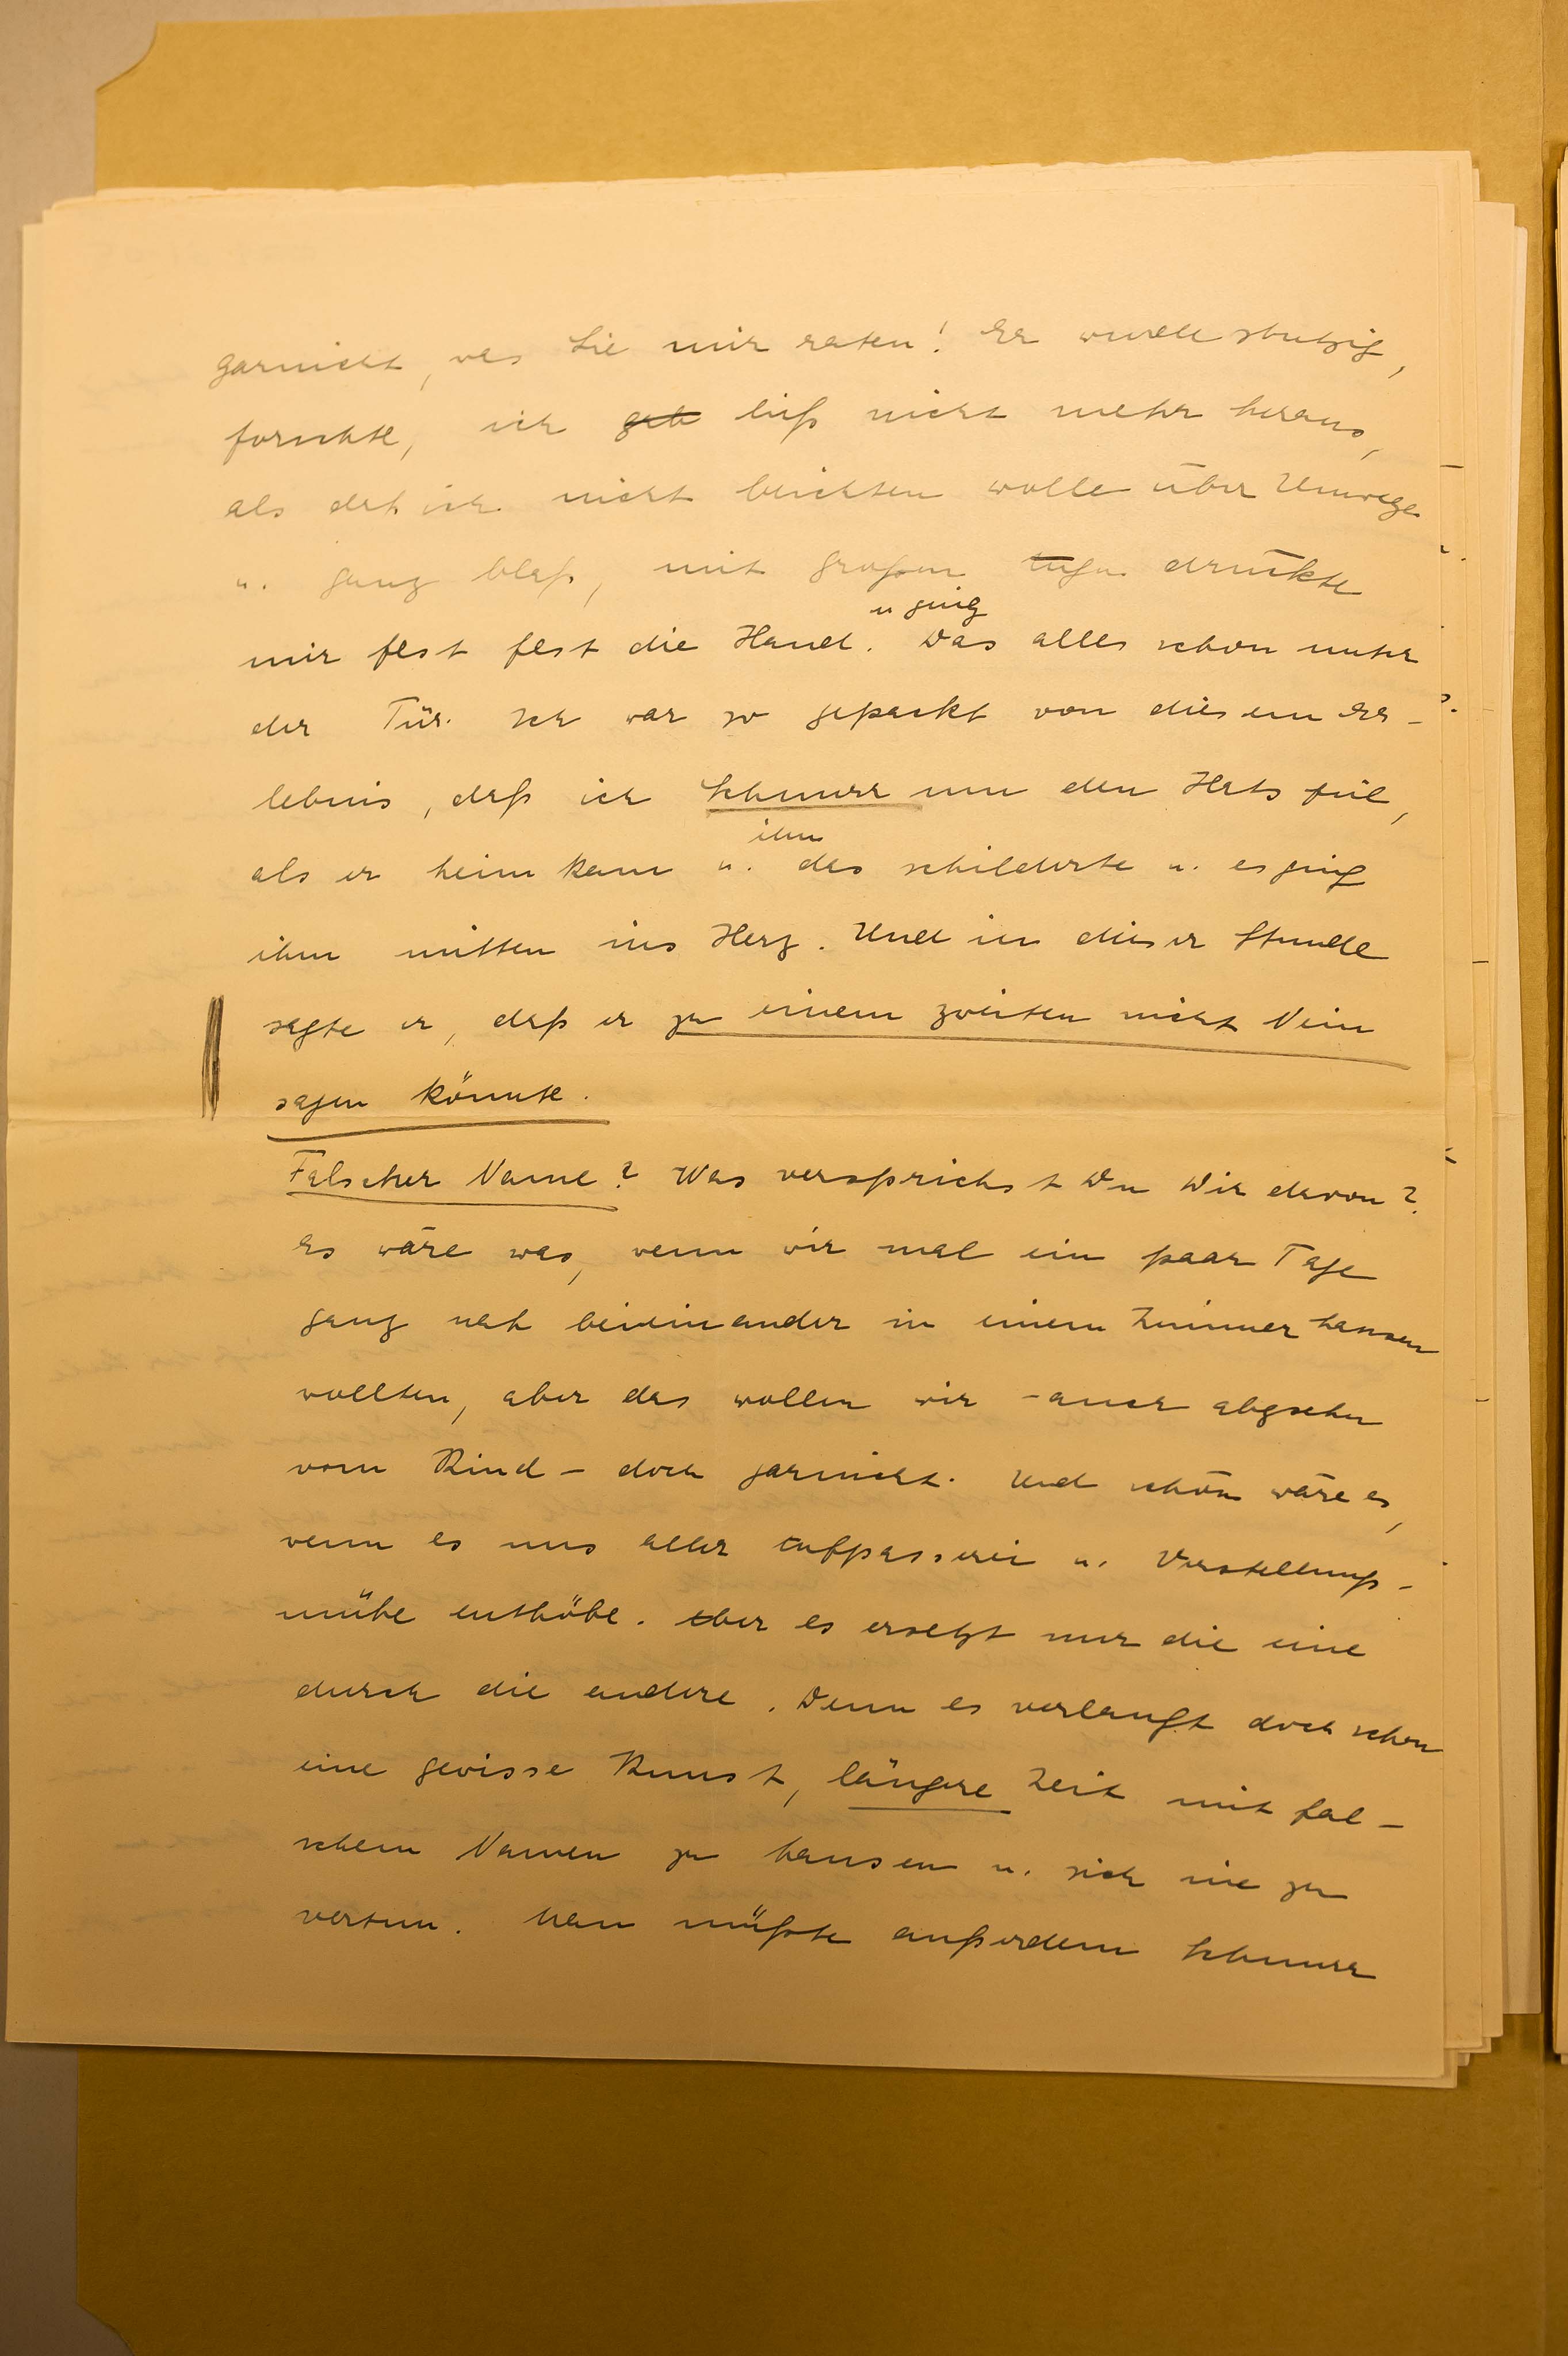 garnicht, was Sie mir raten! Er wurde stutzig,
forschte, ich geb ließ nicht mehr heraus,
als daß ich nicht beichten wolle über Umwege
u. ganz blaß, mit großen Augen drückte
u ging
mir fest fest die Hand. Das alles schon unter
der Tür. Ich war so gepackt von diesem Er-
lebnis, daß ich Schnurr um den Hals fiel,
ihm
als er heim kam u. das schilderte u. es ging
ihm mitten ins Herz. Und in dieser Stunde
sagte er, daß er zu einem zweiten nicht Nein
sagen könnte.
Falscher Name? Was versprichst Du Dir davon?
Es wäre was, wenn wir mal ein paar Tage
ganz nah beieinander in einem Zimmer hausen
wollten, aber das wollen wir - auch abgsehn
vom Kind - doch garnicht. Und schön wäre es,
wenn es uns aller Aufpasserei u. Verstellungs-
mühe enthöbe. Aber es ersetzt nur die eine
durch die andere. Denn es verlangt doch schon
eine gewisse Kunst, längere Zeit mit fal-
schem Namen zu hausen u. sich nie zu
vertun. Man müßte außerdem Schnurr